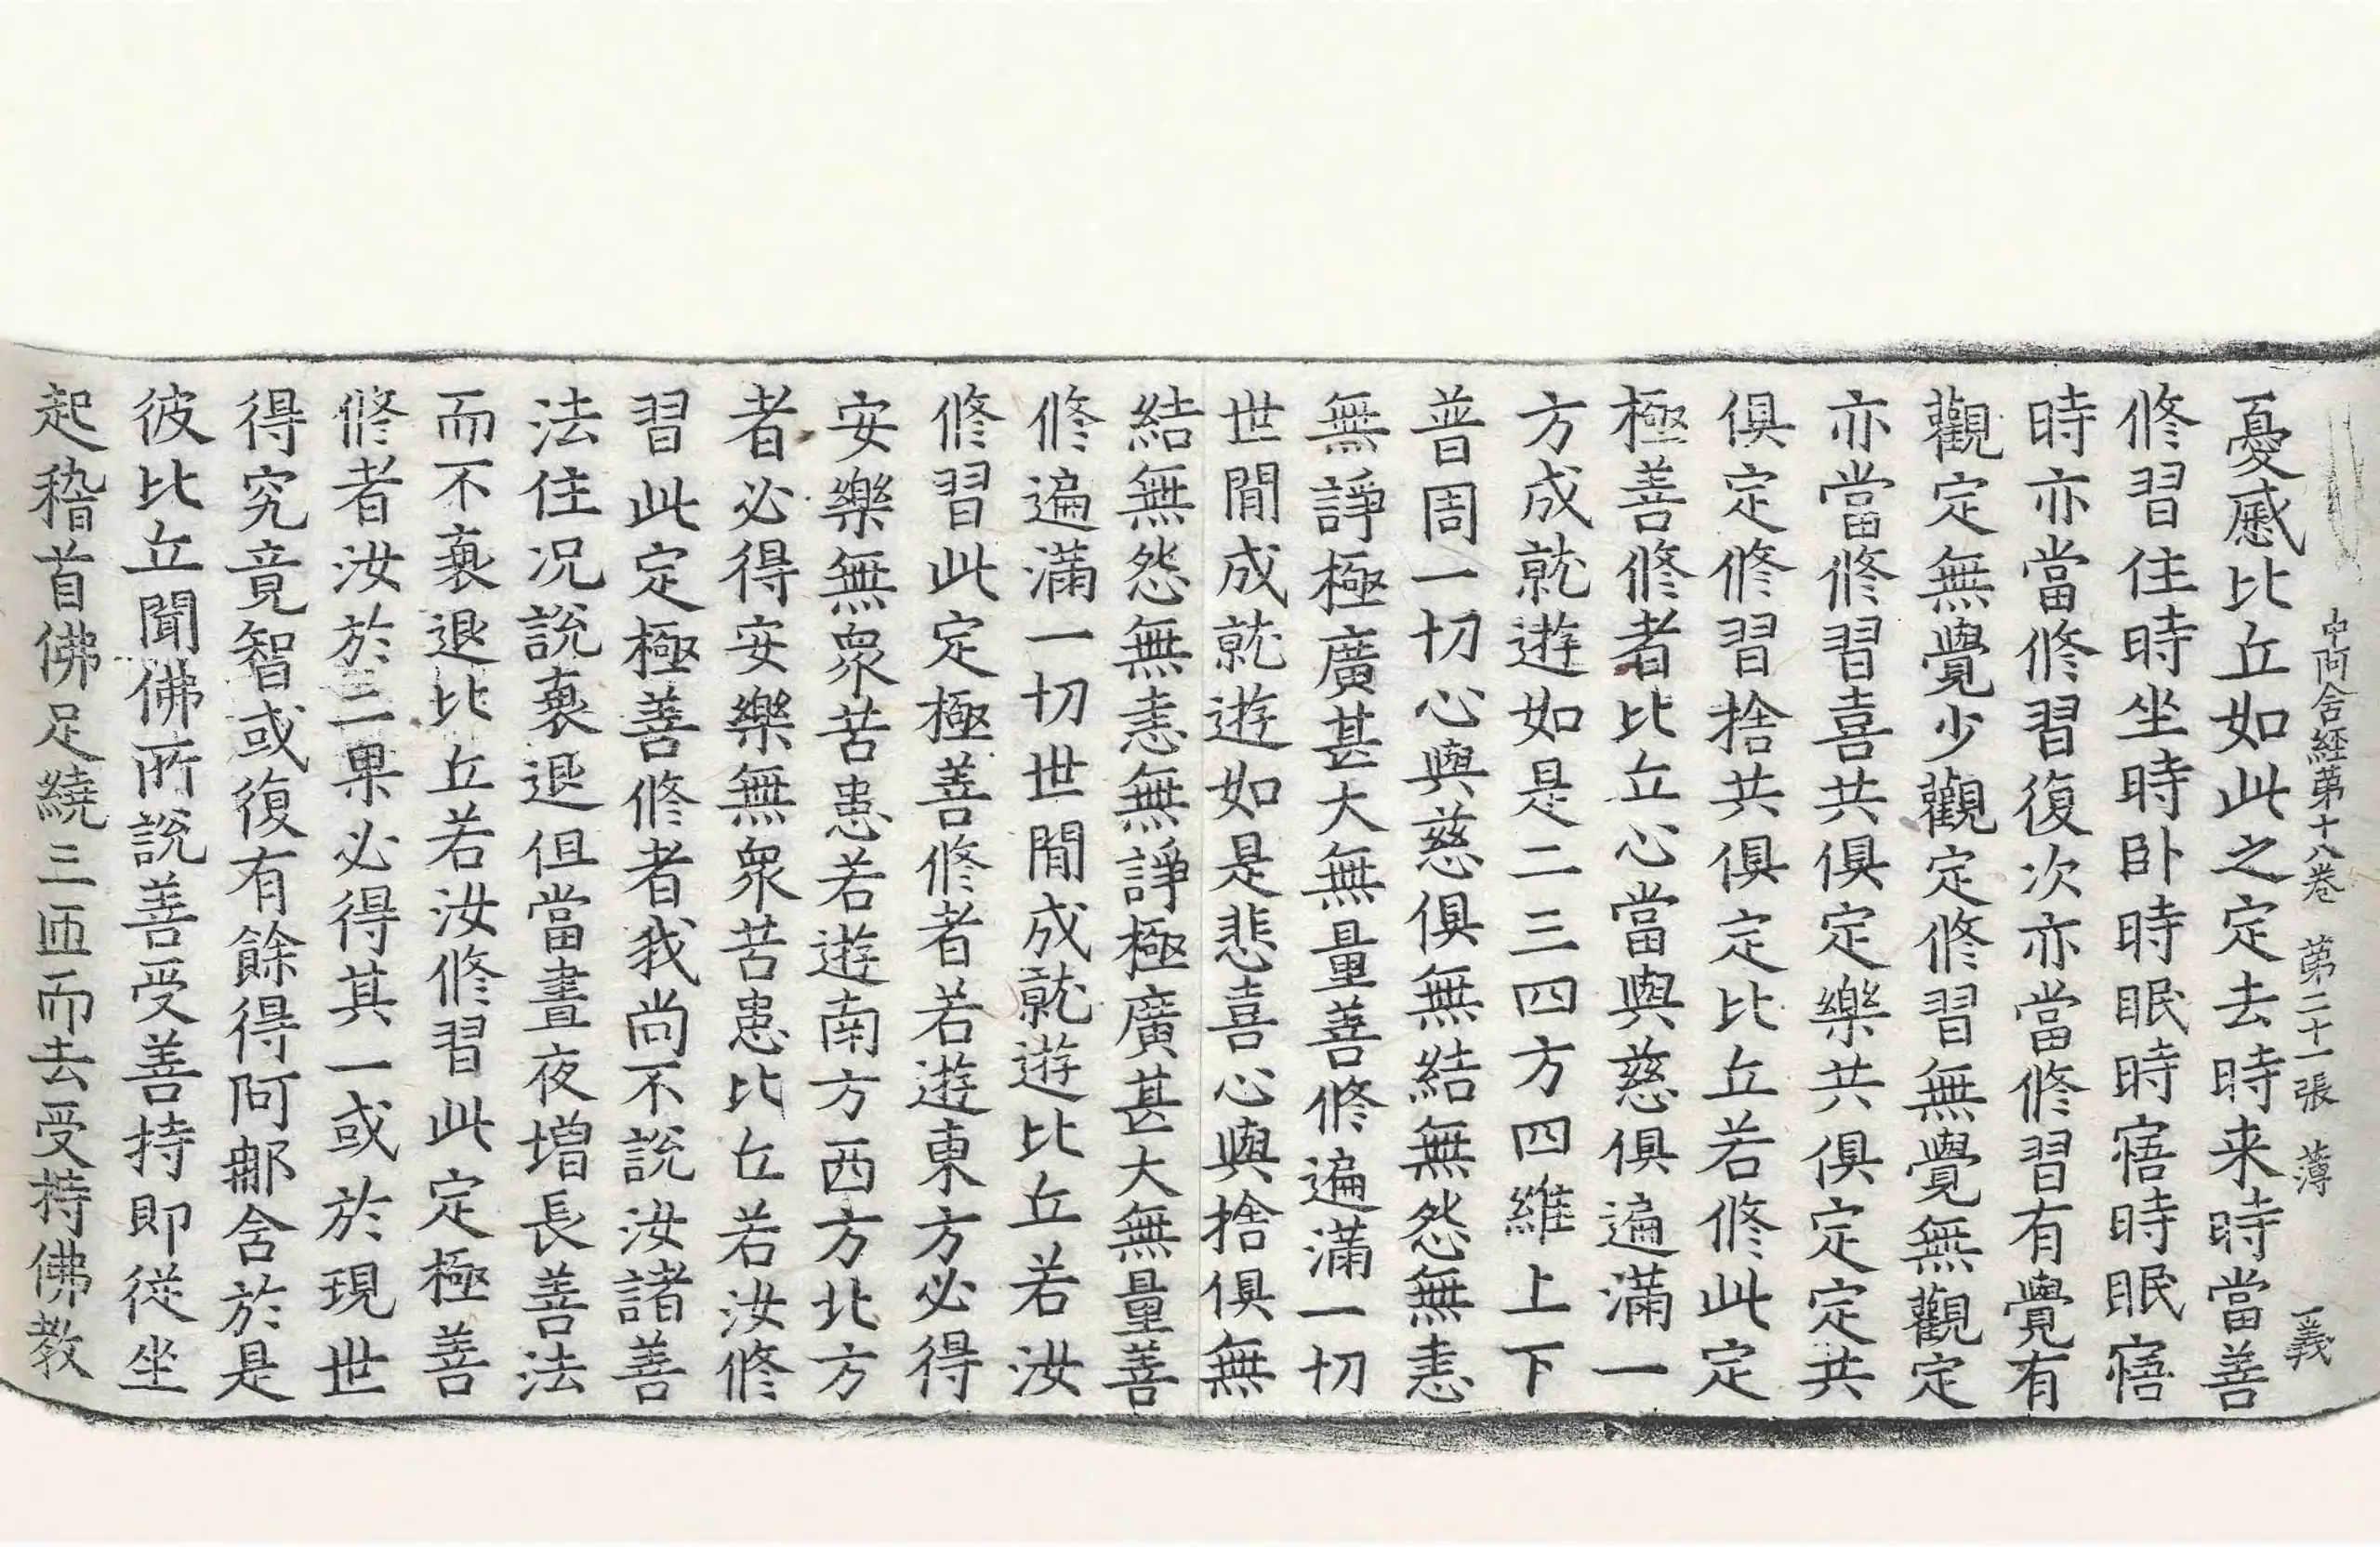 中阿含經第十八卷 第二十一張 薄 義
憂慼比丘如此之定去時来時當善
修習住時坐時卧時眠時寤時眠寤
時亦當修習復次亦當修習有覺有
觀定無覺少觀定修習無覺無觀定
亦當修習喜共俱定樂共俱定定共
俱定修習捨共俱定比丘若修此定
極善修者比丘心當與慈俱遍滿一
方成就遊如是二三四方四維上下
普周一切心與慈俱無結無怨無恚
無諍極廣甚大無量善修遍滿一切
世閒成就遊如是悲喜心與捨俱無
結無怨無恚無諍極廣甚大無量善
修遍滿一切世閒成就遊比丘若汝
修習此定極善修者若遊東方必得
安樂無衆苦患若遊南方西方北方
者必得安樂無衆苦患比丘若汝修
習此定極善修者我尚不說汝諸善
法住况說衰退但當晝夜增長善法
而不衰退比丘若汝修習此定極善
修者汝於二果必得其一或於現世
得究竟智或復有餘得阿那含於是
彼比丘聞佛所說善受善持即從坐
起稽首佛足繞三匝而去受持佛教